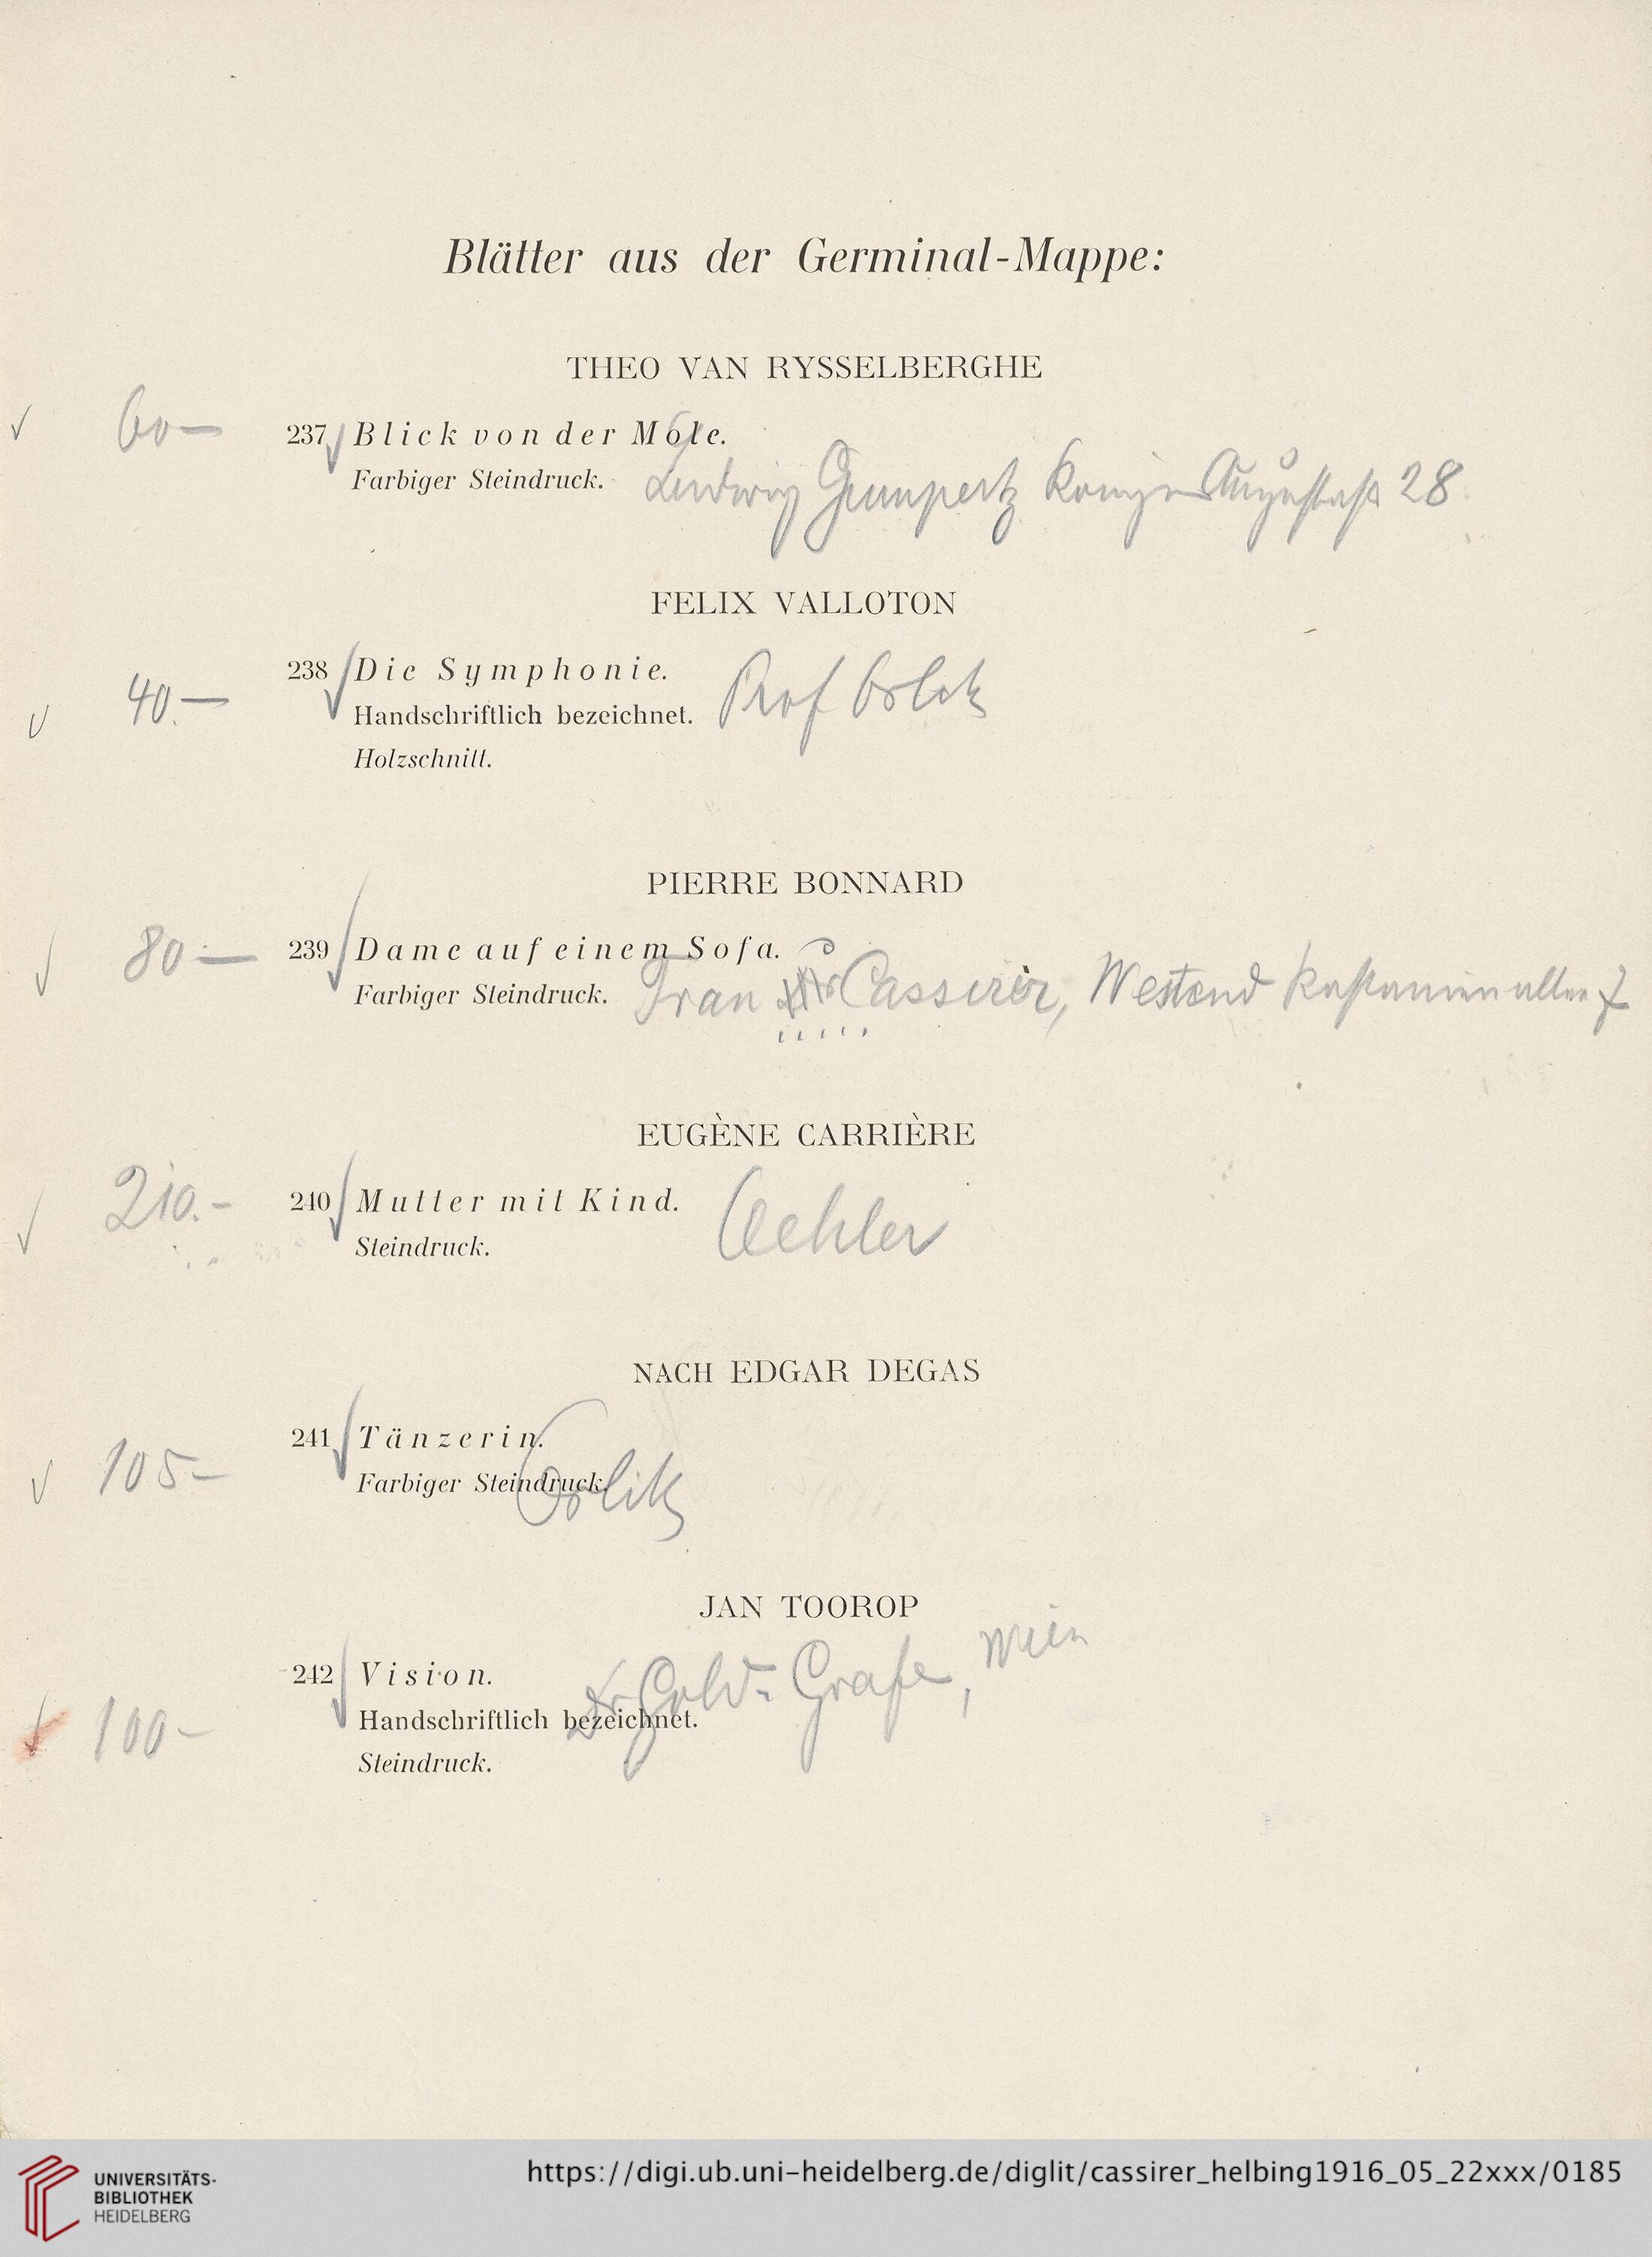 Blätter aus der Germinal-Mappe:
THEO VAN RYSSELBERGHE
60— 237 Blick von der Mole.
Farbiger Steindruck. Ludwig Gumpertz Königin Augustastr 28
FELIX VALLOTON
40.— 238 Die Symphonie.
Handschriftlich bezeichnet. Prof Orlik
Holzschnitt.
PIERRE BONNARD
80— 239 Dame auf einem Sofa.
Farbiger Steindruck. Frau Cassirer, Westend Kastanienallee
EUGÈNE CARRIÈRE
210.- 240 Mutter mit Kind. Oehler
Steindruck.
NACH EDGAR DEGAS
105- 241 Tänzerin.
Farbiger Steindruck. Orlik
JAN TOOROP
242 Vision. Dr Gold- Grafe, Wien
100- Handschriftlich bezeichnet.
Steindruck.
UNIVERSITÄTS-
BIBLIOTHEK
HEIDELBERG
https://digi.ub.uni-heidelberg.de/diglit/cassirer_helbing1916_05_22xxx/0185